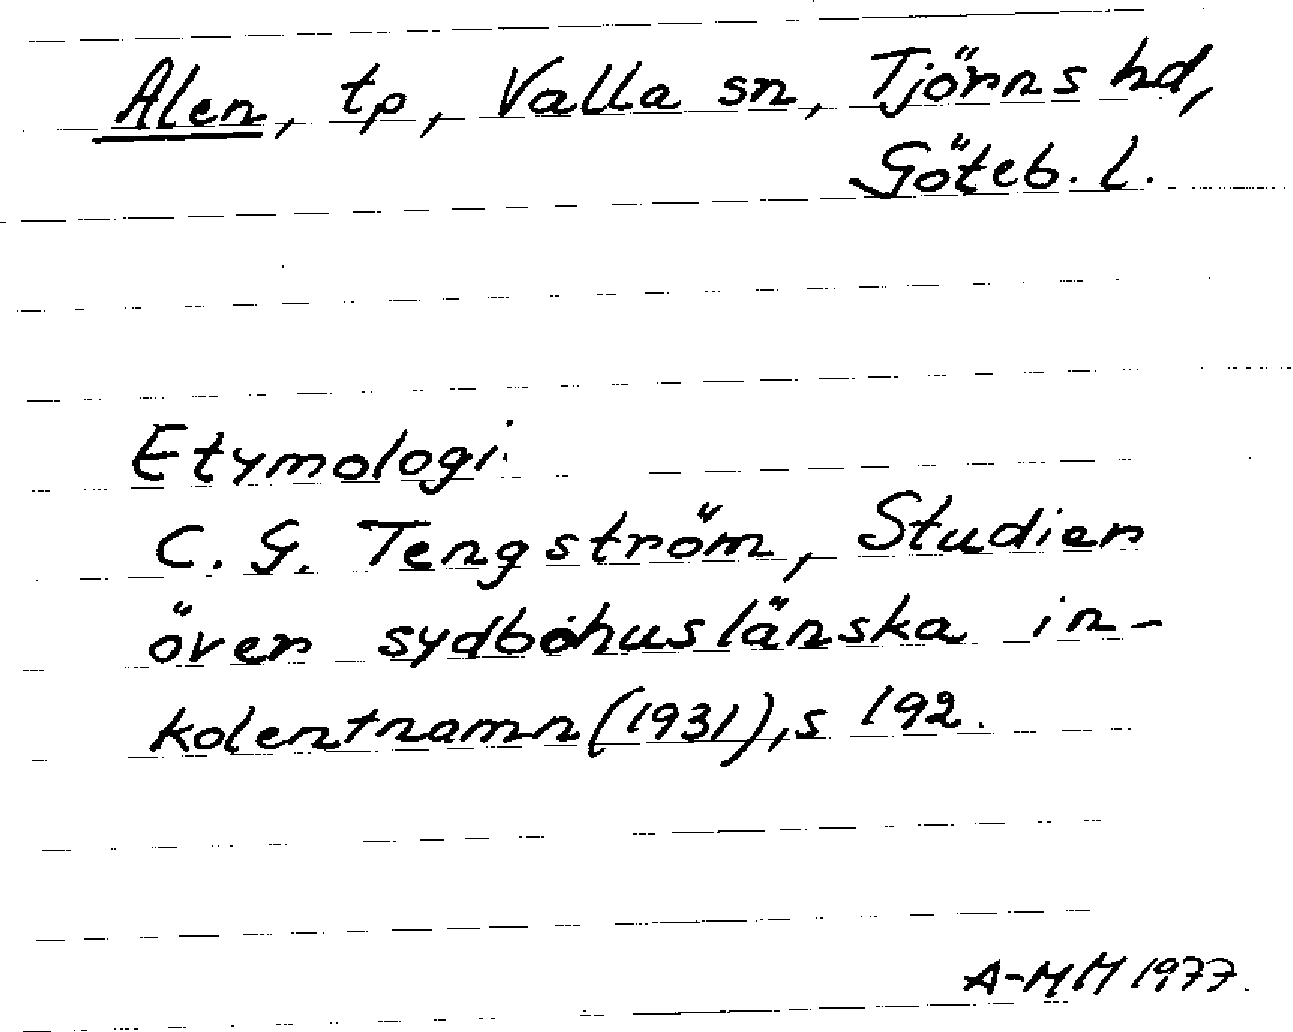 Alen, tp, Valla sn, Tjörns hd,
Göteb. l.
Etymologi:
C. G. Tengström, Studier
över sydbohuslänska in-
kolentnamn (1931), s 192.
A-MM 1977.